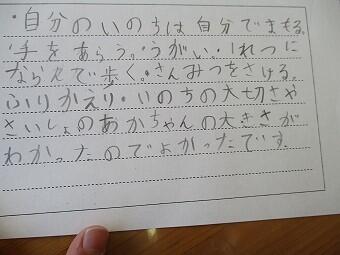 ・自分のいのちは自分でまもる。
・手をあらう。・うがい。・1れつに
ならんで歩く。・さんみつをさける。
ふりかえり・いのちの大切さや
さいしょのあかちゃんの大きさが
わかったのでよかったです。